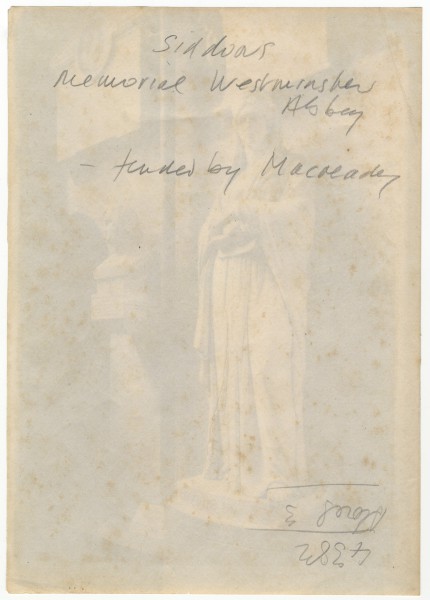 Siddons
Memorial Westminster
Abbey
– funded by Macready